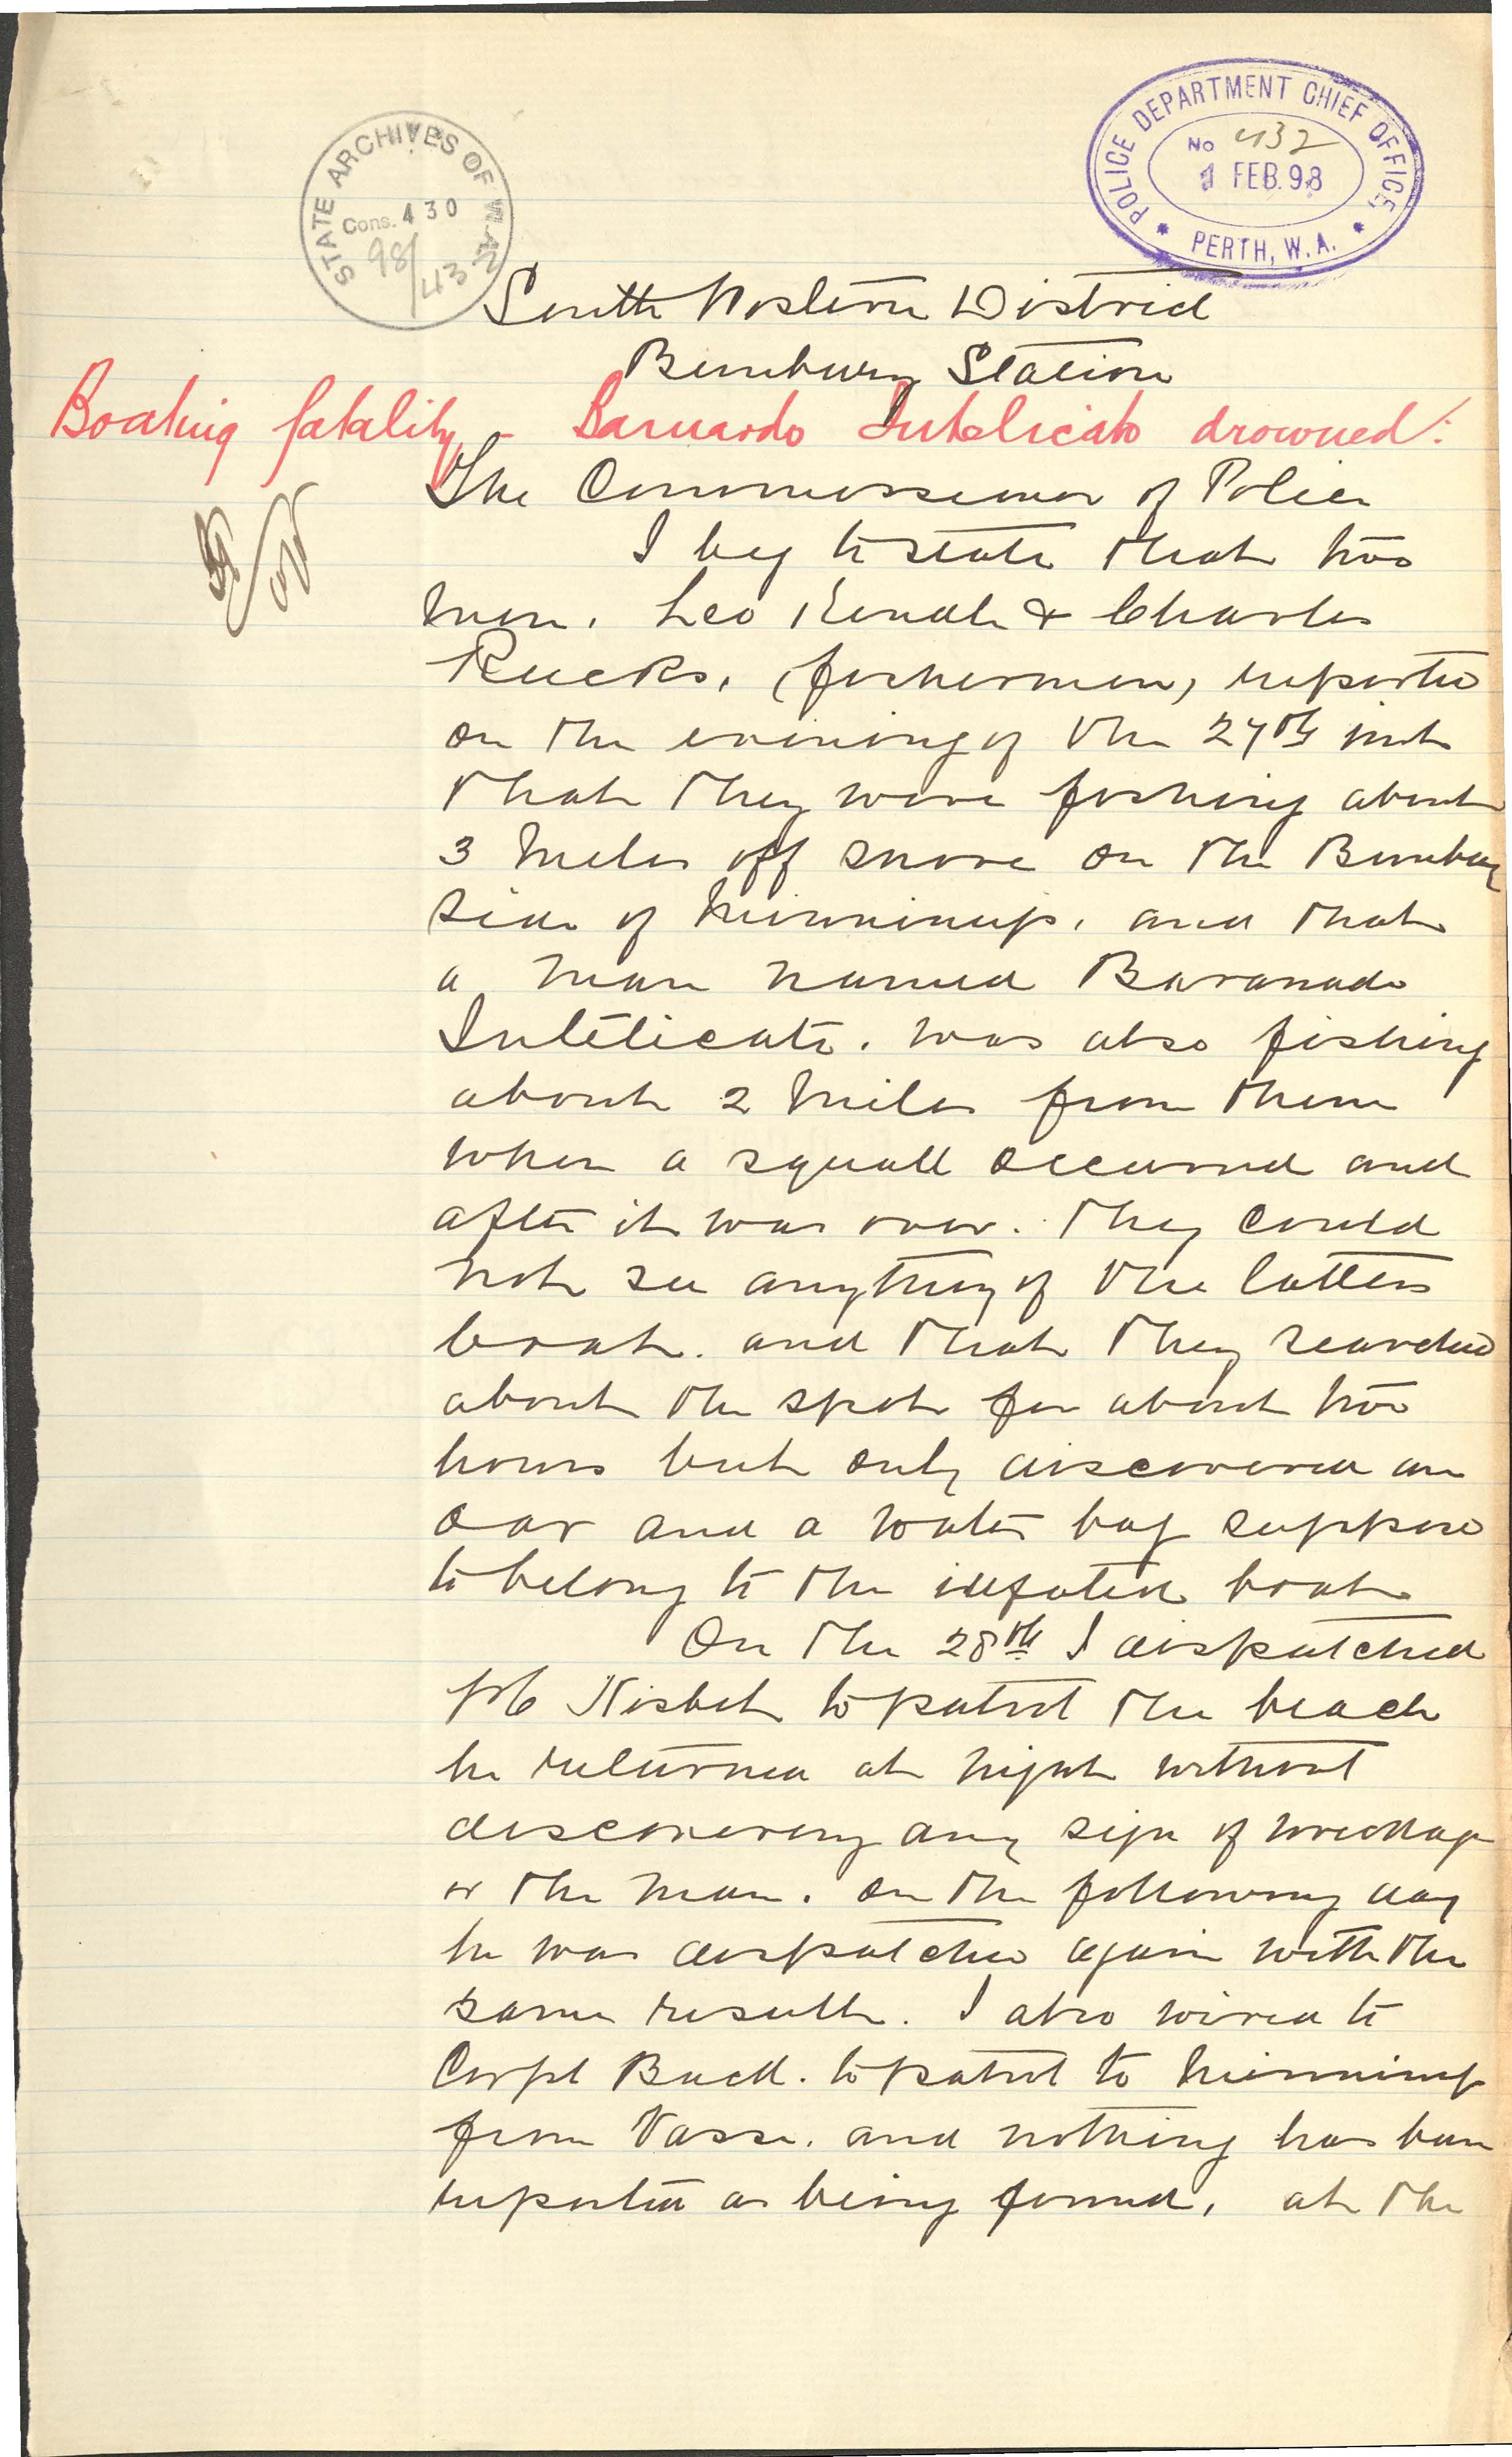 STATE ARCHIVES OF W.A.
Cons. 430
98/432
POLICE DEPARTMENT CHIEF OFFICE,
No 432
1 FEB. 98
* PERTH, W.A. *
South Western District
Bunbury Station
Boating fatality - Barnardo Intelicato drowned:
The Commissioner of Police
I beg to state that two
men. Leo &amp; Charles
Rucks, (fishermen) reported
on the evening of the 27th inst
that they were fishing about
3 miles off shore on the Bunbury
side of Minninup, and that
a man named Baranado
Intelicato. was also fishing
about 2 miles from them
when a squall occurred and
after it was over. They could
not see anything of the latters
boat. and that they searched
about the spot for about two
hours but only discovered an
oar and a water bag suppose
to belong to the illfated boat
On the 28th I dispatched
PC Nisbet to patrol the beach
he returned at night without
discovering any sign of wreckage
or the man. On the following day
he was dispatched again with the
same result. I also wired to
Corpl Buck. to patrol to Minninup
from Vasse. and nothing has been
reported as being found, at the